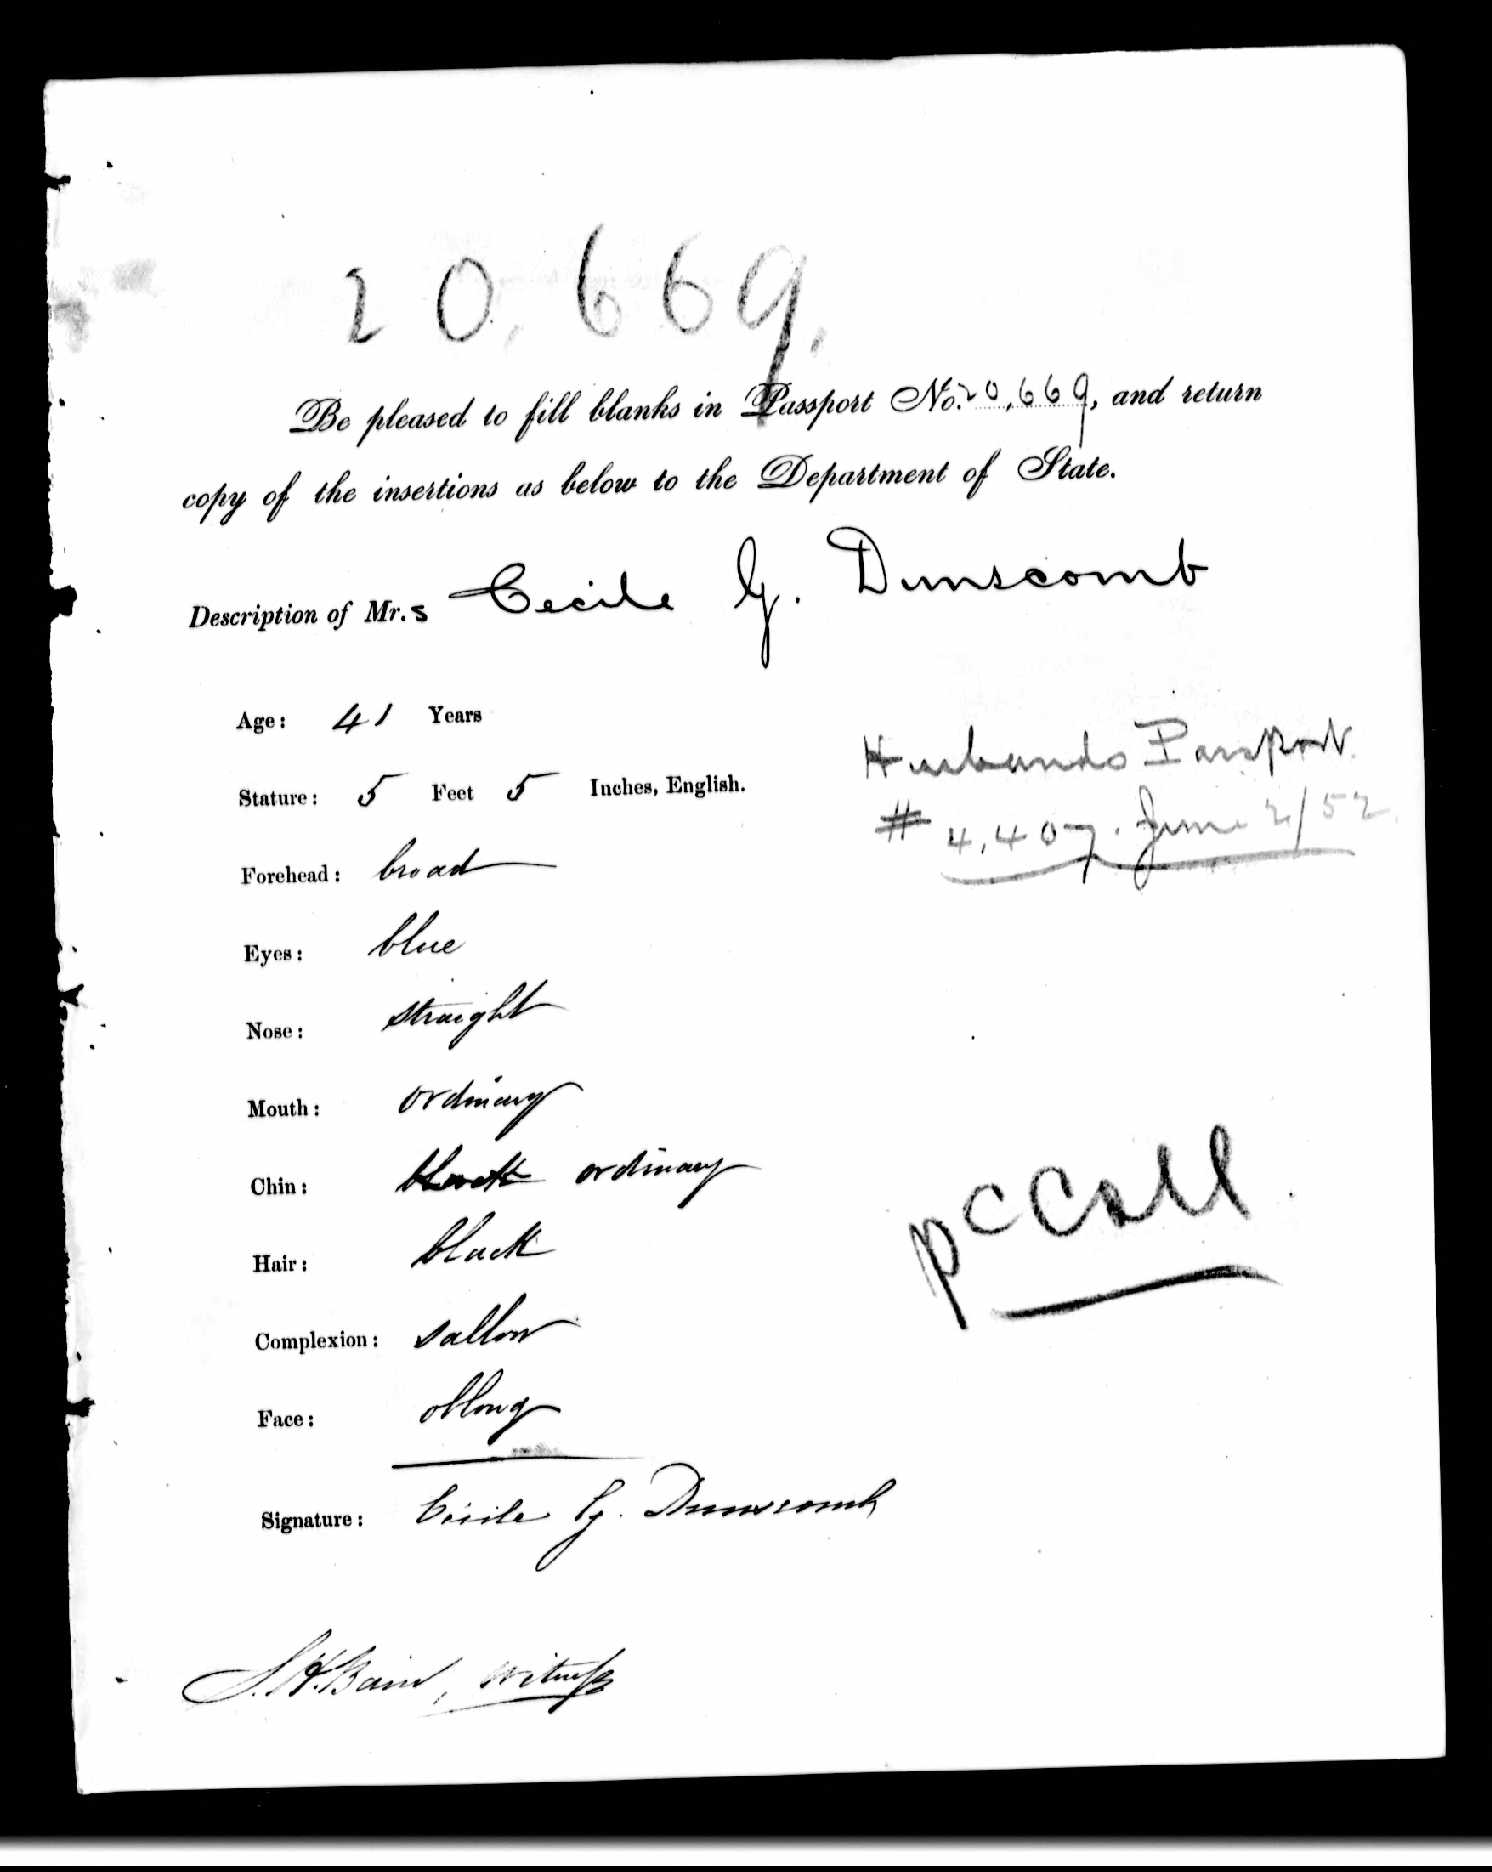 20,669.
Be pleased to fill blanks in Passport No. 20,669, and return
copy of the insertions as below to the Department of State.
Description of Mr.s Cecile G. Dunscomb
Age: 41 Years
Stature: 5 Feet 5 Inches, English.
Husbands Passport
# 4,407. June 2/52
Forehead: broad
Eyes: blue
Nose: straight
Mouth: ordinary
Chin: black ordinary
Hair: black
pcCall
Complexion: sallow
Face: oblong
Signature: Cécile G. Dunscomb
S. H. Bain, witness